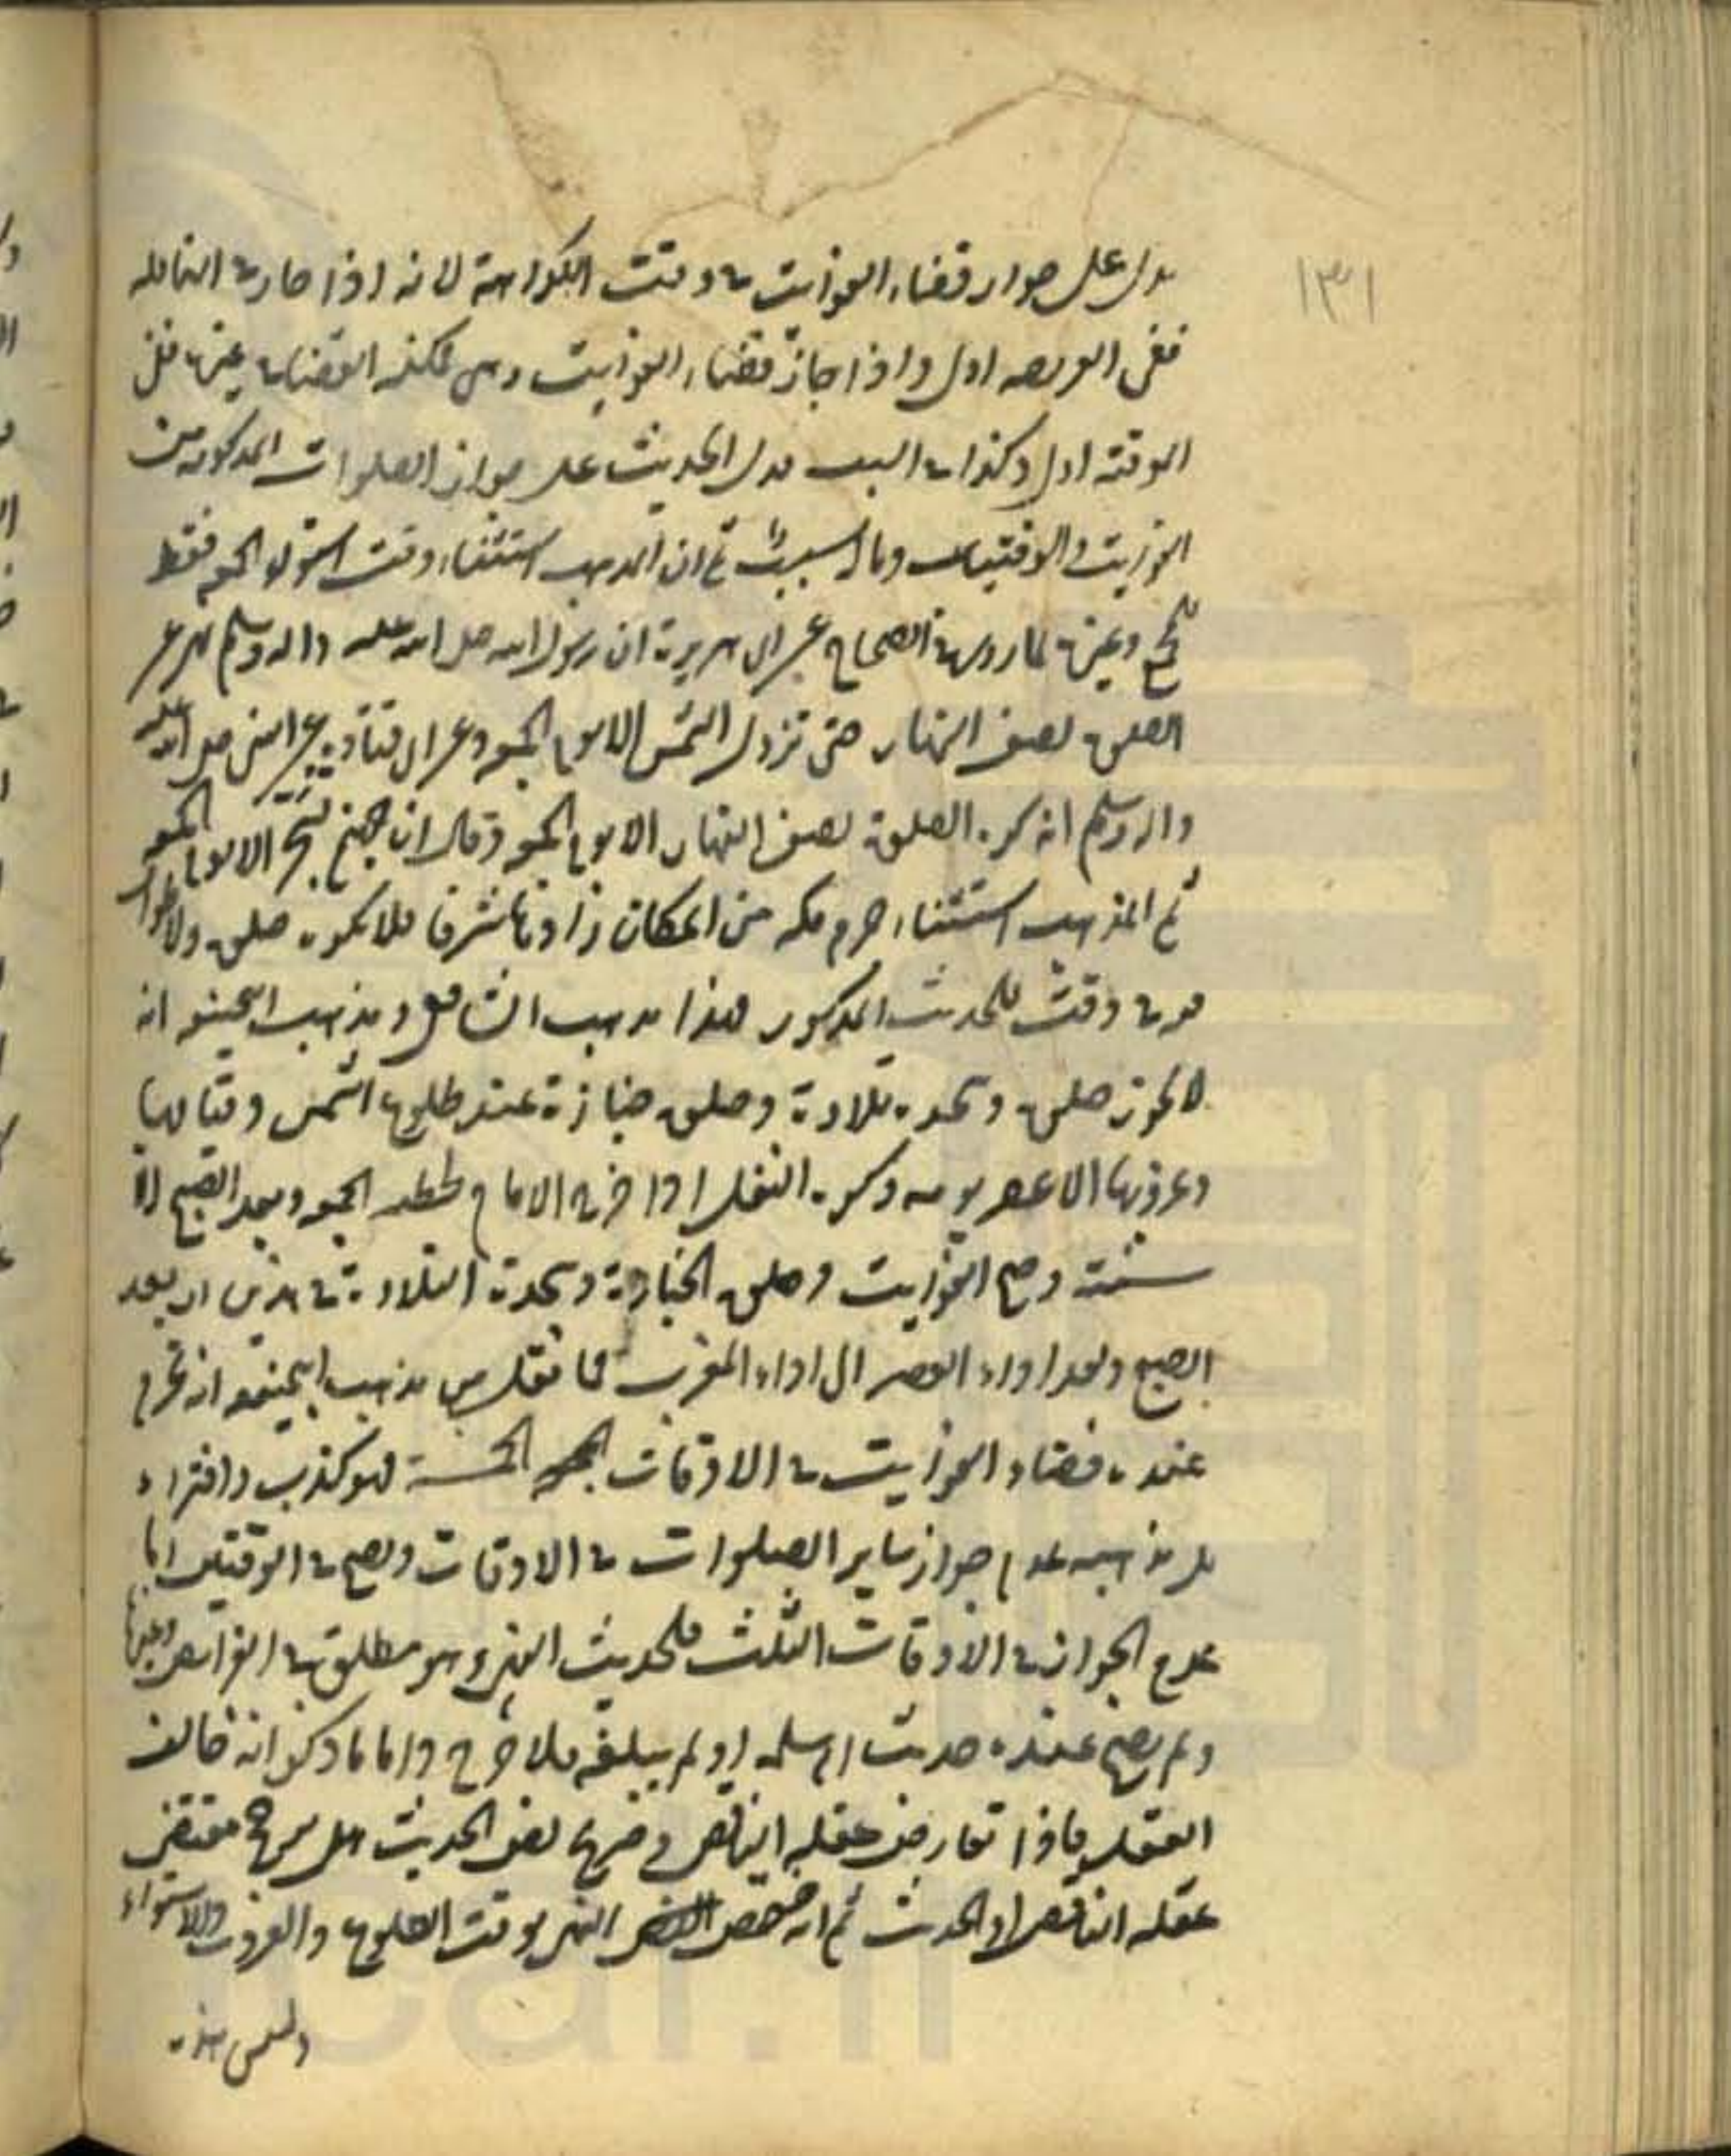 ١٣١
يدل على جواز قضاء الفوايت في وقت الكراهة لانه اذا جاز في النافلة
ففي الفريضه اولى واذا جاز قضاء الفوايت وهي يمكنه القضاء في غيره فلان
الوقتيه اولى وكذا ذات السبب فدل الحديث على جواز الصلوات المذكوره من
الفوايت والوقتيات وما له سبب ثم ان المذهب استثناء وقت استواء الجمعه فقط
وغيره لما روى في الصحاح عن ابى هريرة ان رسول الله صلى الله عليه واله وسلم نهى عن
الصلوه نصف النهار حتى تزول الشمس الا يوم الجمعه وعن ابى قتادة عن النبي صلى الله عليه
واله وسلم انه كره الصلوة نصف النهار الا يوم الجمعه وقال ان جهنم تسجر الا يوم الجمعه
ثم المذهب استثناء حرم مكه من المكان زادها شرفا فلا يكره صلوه ولا طواف
فيه في وقت للحديث المذكور هذا مذهب الشافعي ومذهب ابى حنيفه انه
لا يجوز صلوه وسجده تلاوة وصلوه جنازة عند طلوع الشمس وقيامها
وغروبها الا عصر يومه وكره النفل اذا خرج الامام لخطبه الجمعه وبعد الصبح الا
سنته وصح الفوايت وصلوه الجنازة وسجدة التلاوة في هذين اى بعد
الصبح وبعد اداء العصر الى اداء المغرب فما نقل من مذهب ابى حنيفه انه يحرم
عنده قضاء الفوايت في الاوقات الخمسة فهو كذب وافتراء
بل مذهبه عدم جواز ساير الصلوات في الاوقات ويصح في الوقتين اما
عدم الجواز في الاوقات الثلث فلحديث النهى وهو مطلق في الفرائض وغيرها
ولم يصح عنده حديث ام سلمه او لم يبلغه فلا حرج واما ما ذكر انه خالف
العقل فاذا تعارض عقله الناقص وصريح نص الحديث هل يرجح مقتضى
عقله الناقص او الحديث ثم انه خصص النهى بوقت الطلوع والغروب والاستواء
وليس هذه